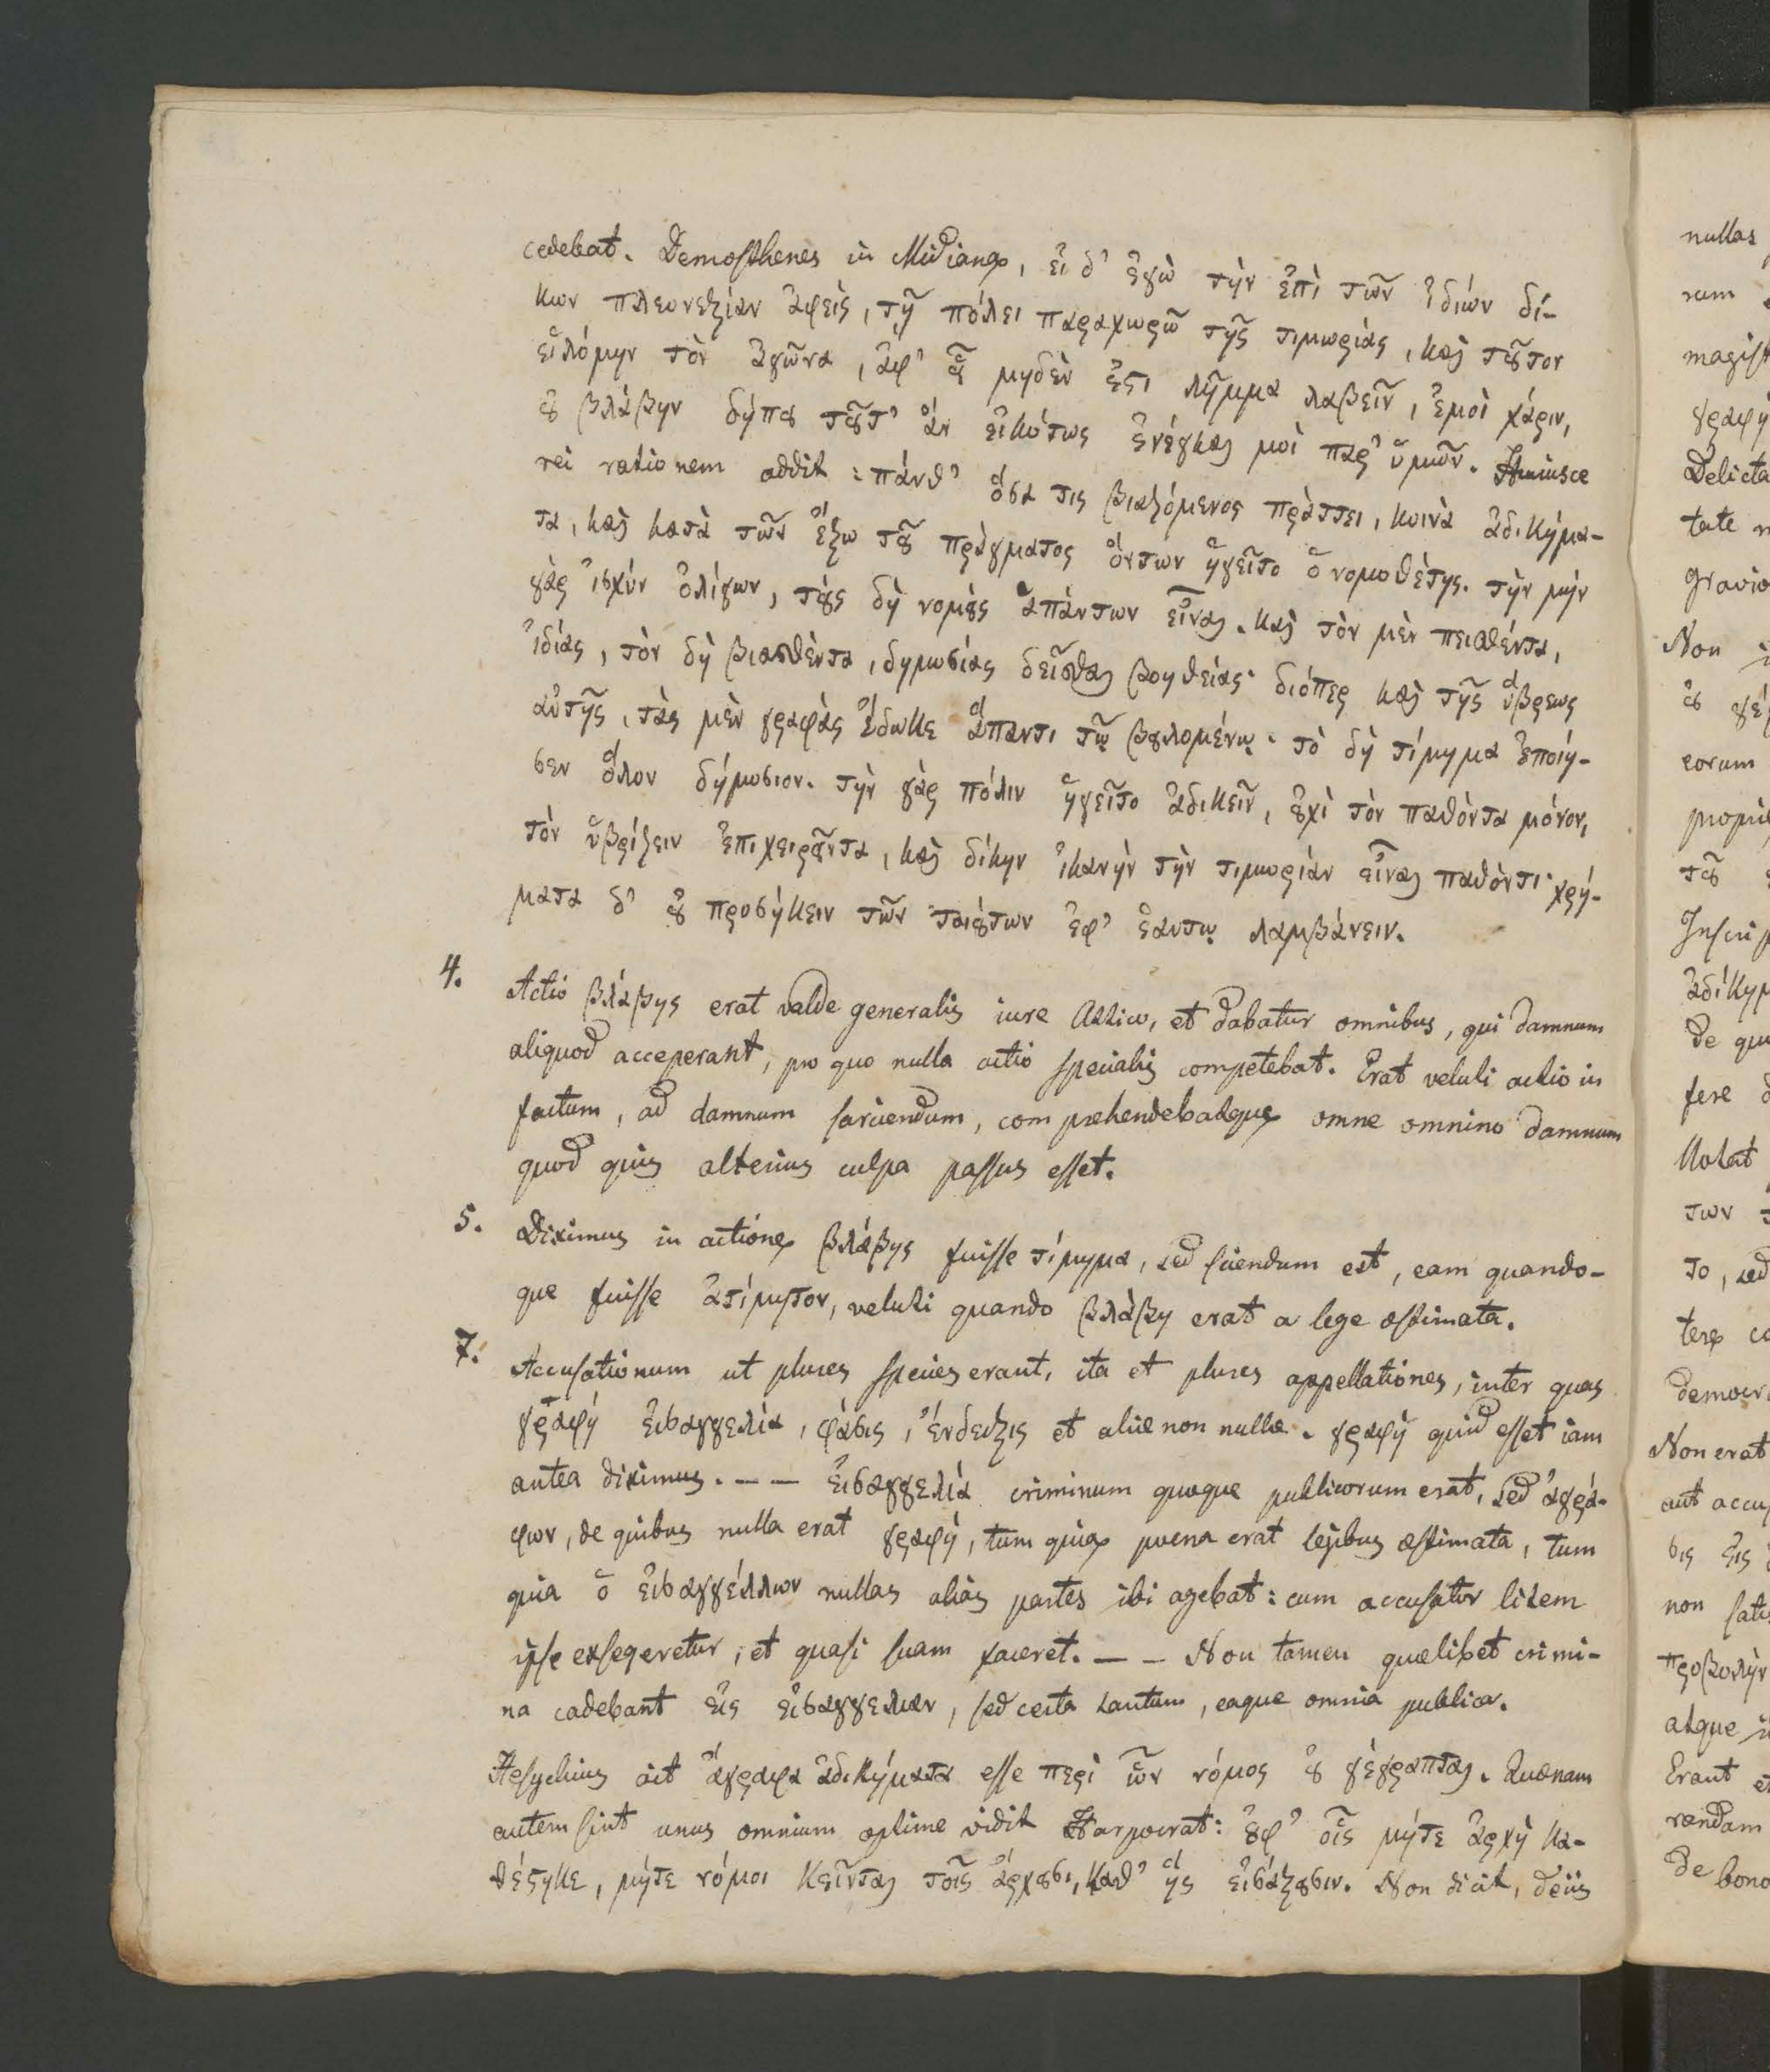 cedebat. Demosthenes in Midiana, εἰ δ' ἐγὼ τὴν ἐπὶ τῶν ἰδιών δί-
κων πλεονεξίαν ἀφεὶς, τῇ πόλει παραχωρῶ τῆς τιμωρίας, καὶ τοῦτον
εἱλόμην τὸν ἀγῶνα, ἀφ' οὗ μηδὲν ἔστι λῆμμα λαβεῖν, ἐμοὶ χάριν,
οὐ βλάβην δήπου τοῦτ' ἄν εἰκότως ἐνέγκαι μοὶ παρ' ὑμῶν. Huiusce
rei rationem addit: πάνθ' ὅσα τις βιαζόμενος πράττει, κοινὰ ἀδικήμα-
τα, καὶ κατὰ τῶν ἔξω τοῦ πράγματος ὄντων ἡγεῖτο ὁ νομοθέτης. τὴν μήν
γὰρ ἰσχύν ὀλίγων, τοὺς δὴ νομοὺς ἁπάντων εἶναι. καὶ τὸν μὲν πεισθέντα,
ἰδίας, τὸν δὴ βιασθέντα, δημοσίας δεῖσθαι βοηθείας· διόπερ καὶ τῆς ὕβρεως
αὐτῆς, τὰς μὲν γραφὰς ἔδωκε ἅπαντι τῷ βουλομένῳ· τὸ δὴ τίμημα ἐποίη-
σεν ὅλον δήμοσιον. τὴν γὰρ πόλιν ἡγεῖτο ἀδικεῖν, οὐχὶ τὸν παθόντα μόνον,
τὸν ὑβρίζειν ἐπιχειροῦντα, καὶ δίκην ἱκανὴν τὴν τιμωρίαν εἶναι παθόντι· χρή-
ματα δ' οὐ προσήκειν τῶν τοιούτων ἐφ' ἑαυτῳ λαμβάνειν.
4. Actio βλάβης erat valde generalis iure Attico, et dabatur omnibus, qui damnum
aliquod acceperant, pro quo nulla actio specialis competebat. Erat veluti actio in
factum, ad damnum sarciendum, comprehendebatque omne omnino damnum
quod quis alterius culpa passus esset.
5. Diximus in actione βλάβης fuisse τίμημα, sed sciendum est, eam quando-
que fuisse ἀτίμητον, veluti quando βλάβη erat a lege æstimata.
7. Accusationum ut plures species erant, ita et plures appellationes, inter quas
γραφή εἰσαγγελία, φάσις, ἔνδειξις et aliæ non nullæ. γραφὴ quid esset iam
antea diximus. — — εἰσαγγελία criminum quoque publicorum erat, sed ἀγρά-
φων, de quibus nulla erat γραφή, tum quia poena erat legibus æstimata, tum
quia ὁ εἰσαγγέλλων nullas alias partes ibi agebat: cum accusator litem
ipse exsegeretur, et quasi suam faceret. — — Non tamen quælibet crimi-
na cadebant εἰς εἰσαγγελιαν, sed certa tantum, eaque omnia publica.
Hesychius ait ἄγραφα ἀδικήματα esse περὶ ὧν νόμος οὐ γέγραπται. Quænam
autem sint unus omnium optime vidit Harpocrat: ἐφ' οἷς μήτε ἀρχὴ κα-
θέστηκε, μήτε νόμοι κεῖνται τοῖς ἄρχουσι, καθ' ἧς εἰσάξουσιν. Non dicit, de iis
nullas
rum
magist
γραφή
Delicta
tate
gravio
Non
οὐ γέγ
eorum
propri
τοῦ
Inscrip
ἀδίκημ
de qui
fere
Notat
των
το, sed
tere co
democra
Non erat
aut accus
σις εἰς
non satis
προβολὴν
atque
Erant et
rendam
De bono